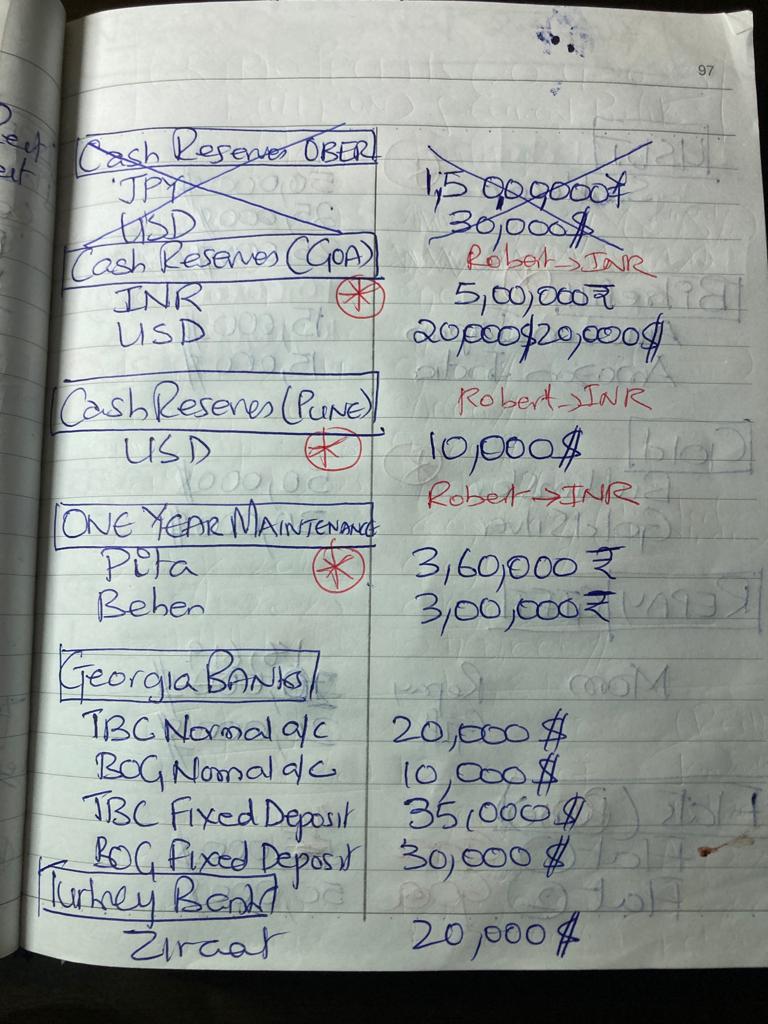 97
Cash Reserves OBER
JPY 1,5 000,000¥
USD 30,000$
Cash Reserves (GOA) Robert→INR
INR * 5,00,000₹
USD 20,000$ 20,000$
Cash Reserves (PUNE) Robert→INR
USD * 10,000$
Robert→INR
ONE YEAR MAINTENANCE
Pita * 3,60,000₹
Behen 3,00,000₹
Georgia BANKS
TBC Normal a/c 20,000$
BOG Normal a/c 10,000$
TBC Fixed Deposit 35,000$
BOG Fixed Deposit 30,000$
Turkey Bank
Ziraat 20,000$